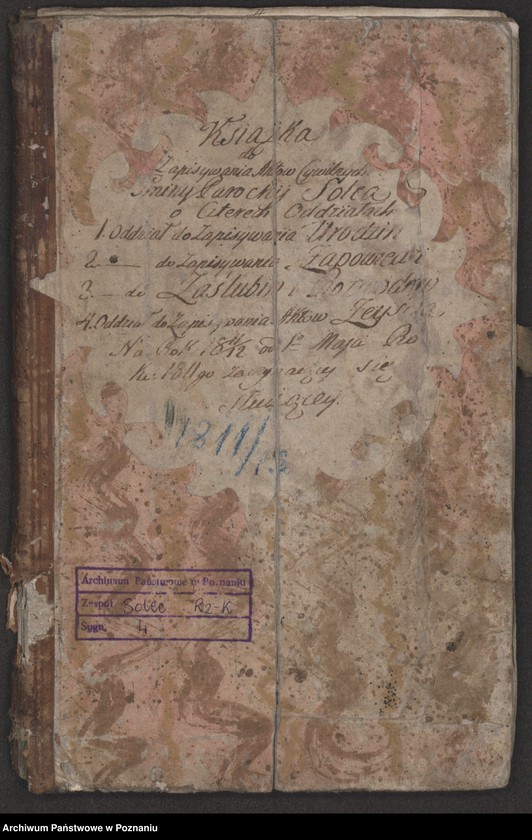 Książka
do
Zapisywania Aktow Cywilnych
Gminy Parochij Solca
o Czterech Oddziałach
1. Oddział do Zapisywania Urodzin
2. — do Zapisywania Zapowiedzi
3. — do Zaslubin i Rozwodow
4. Oddział do Zapisywania Aktow Zeyscia
Na Rok 18 11/12 od 1º Maja Ro
ku 1811go zaczynaiący się
służący.
1811/13
Archiwum Państwowe w Poznaniu
Zespół Solec Rz-K
Sygn. 4
Archiwum Państwowe w Poznaniu